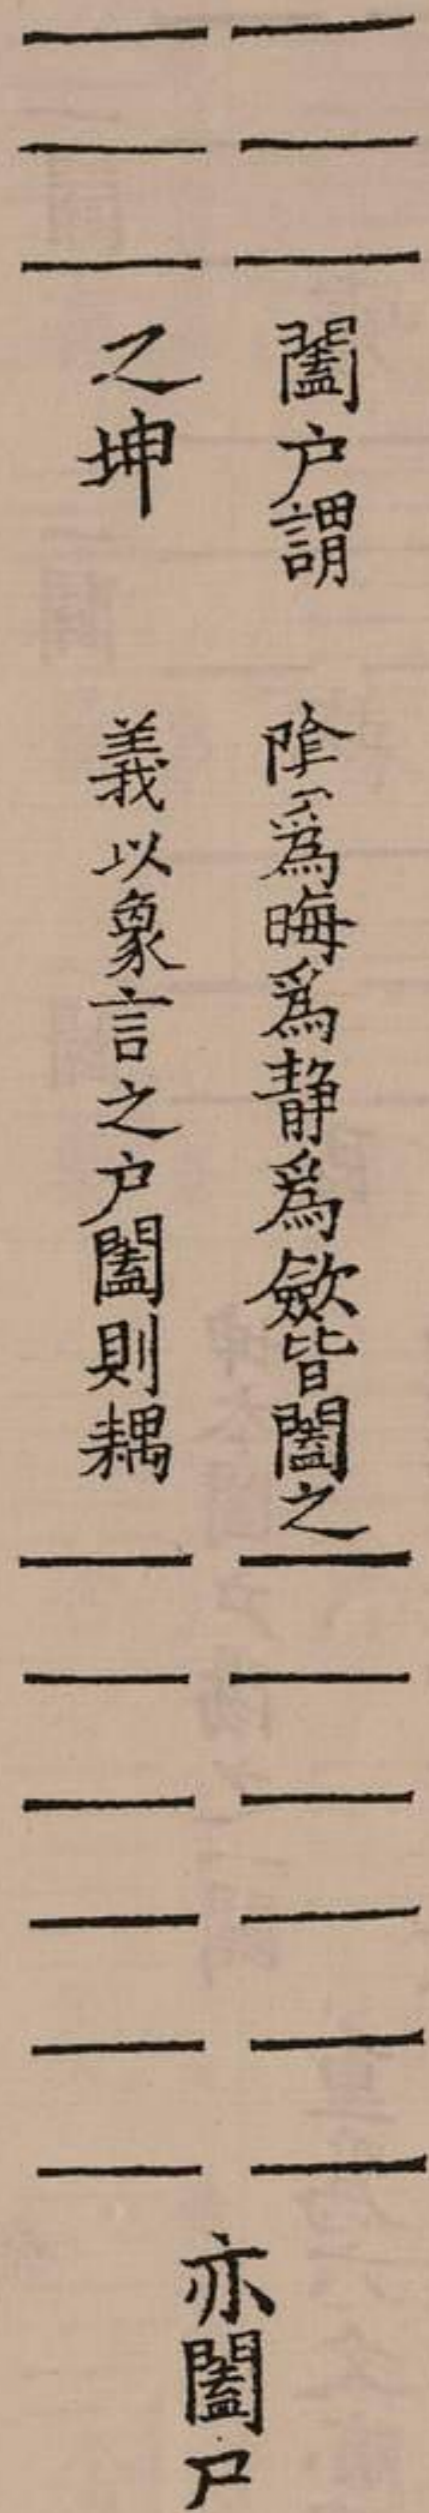 闔户謂
之坤
陰為晦為静為斂皆闔之
義以象言之户闔則耦
亦闔户